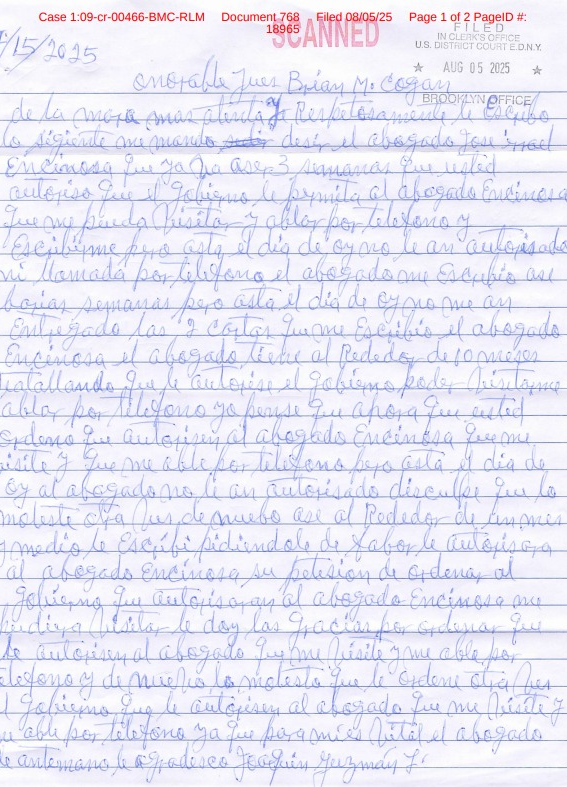 Case 1:09-cr-00466-BMC-RLM Document 768 Filed 08/05/25 Page 1 of 2 PageID #: 18965
SCANNED
FILED
IN CLERK'S OFFICE
U.S. DISTRICT COURT E.D.N.Y.
★ AUG 05 2025 ★
BROOKLYN OFFICE
/15/2025
onorable Jues Brian M. Cogan
de la mara mas atenta y Respetosamente le Escribo
lo sigiente me mando desir el abogado Jose
Encinosa que ya ba aser 3 semanas que usted
autoriso que el Gobierno le permita al abogado Encinosa
que me pueda Visitar y ablar por telefono y
Escribirme pero asta el dia de oy no le an autorisado
ni llamada por telefono el abogado me Escribio ase
barias semanas pero asta el dia de oy no me an
Entregado las 2 cartas que me Escribio el abogado
Encinosa el abogado tiene al Rededor de 10 meses
que le autorise el Gobierno poder Visitarme
ablar por telefono yo pense que ahora que usted
ordeno que autorisen al abogado Encinosa que me
visite y que me able por telefono pero asta el dia de
oy al abogado no le an autorisado disculpe que lo
moleste otra Ves de nuebo ase al Rededor de un mes
y medio le Escribi pidiendole de fabor le autorisara
al abogado Encinosa su petision de ordenar al
Gobierno que autorisaran al abogado Encinosa me
pudiera Visitar le doy las Gracias por ordenar que
le autorisen al abogado que me Visite y me able por
telefono y de nuevo lo molesto que le ordene otra Ves
al Gobierno que le autorisen al abogado que me Visite y
me able por telefono ya que para mi es Vital el abogado
de antemano le agradesco Joaquin Guzman L.